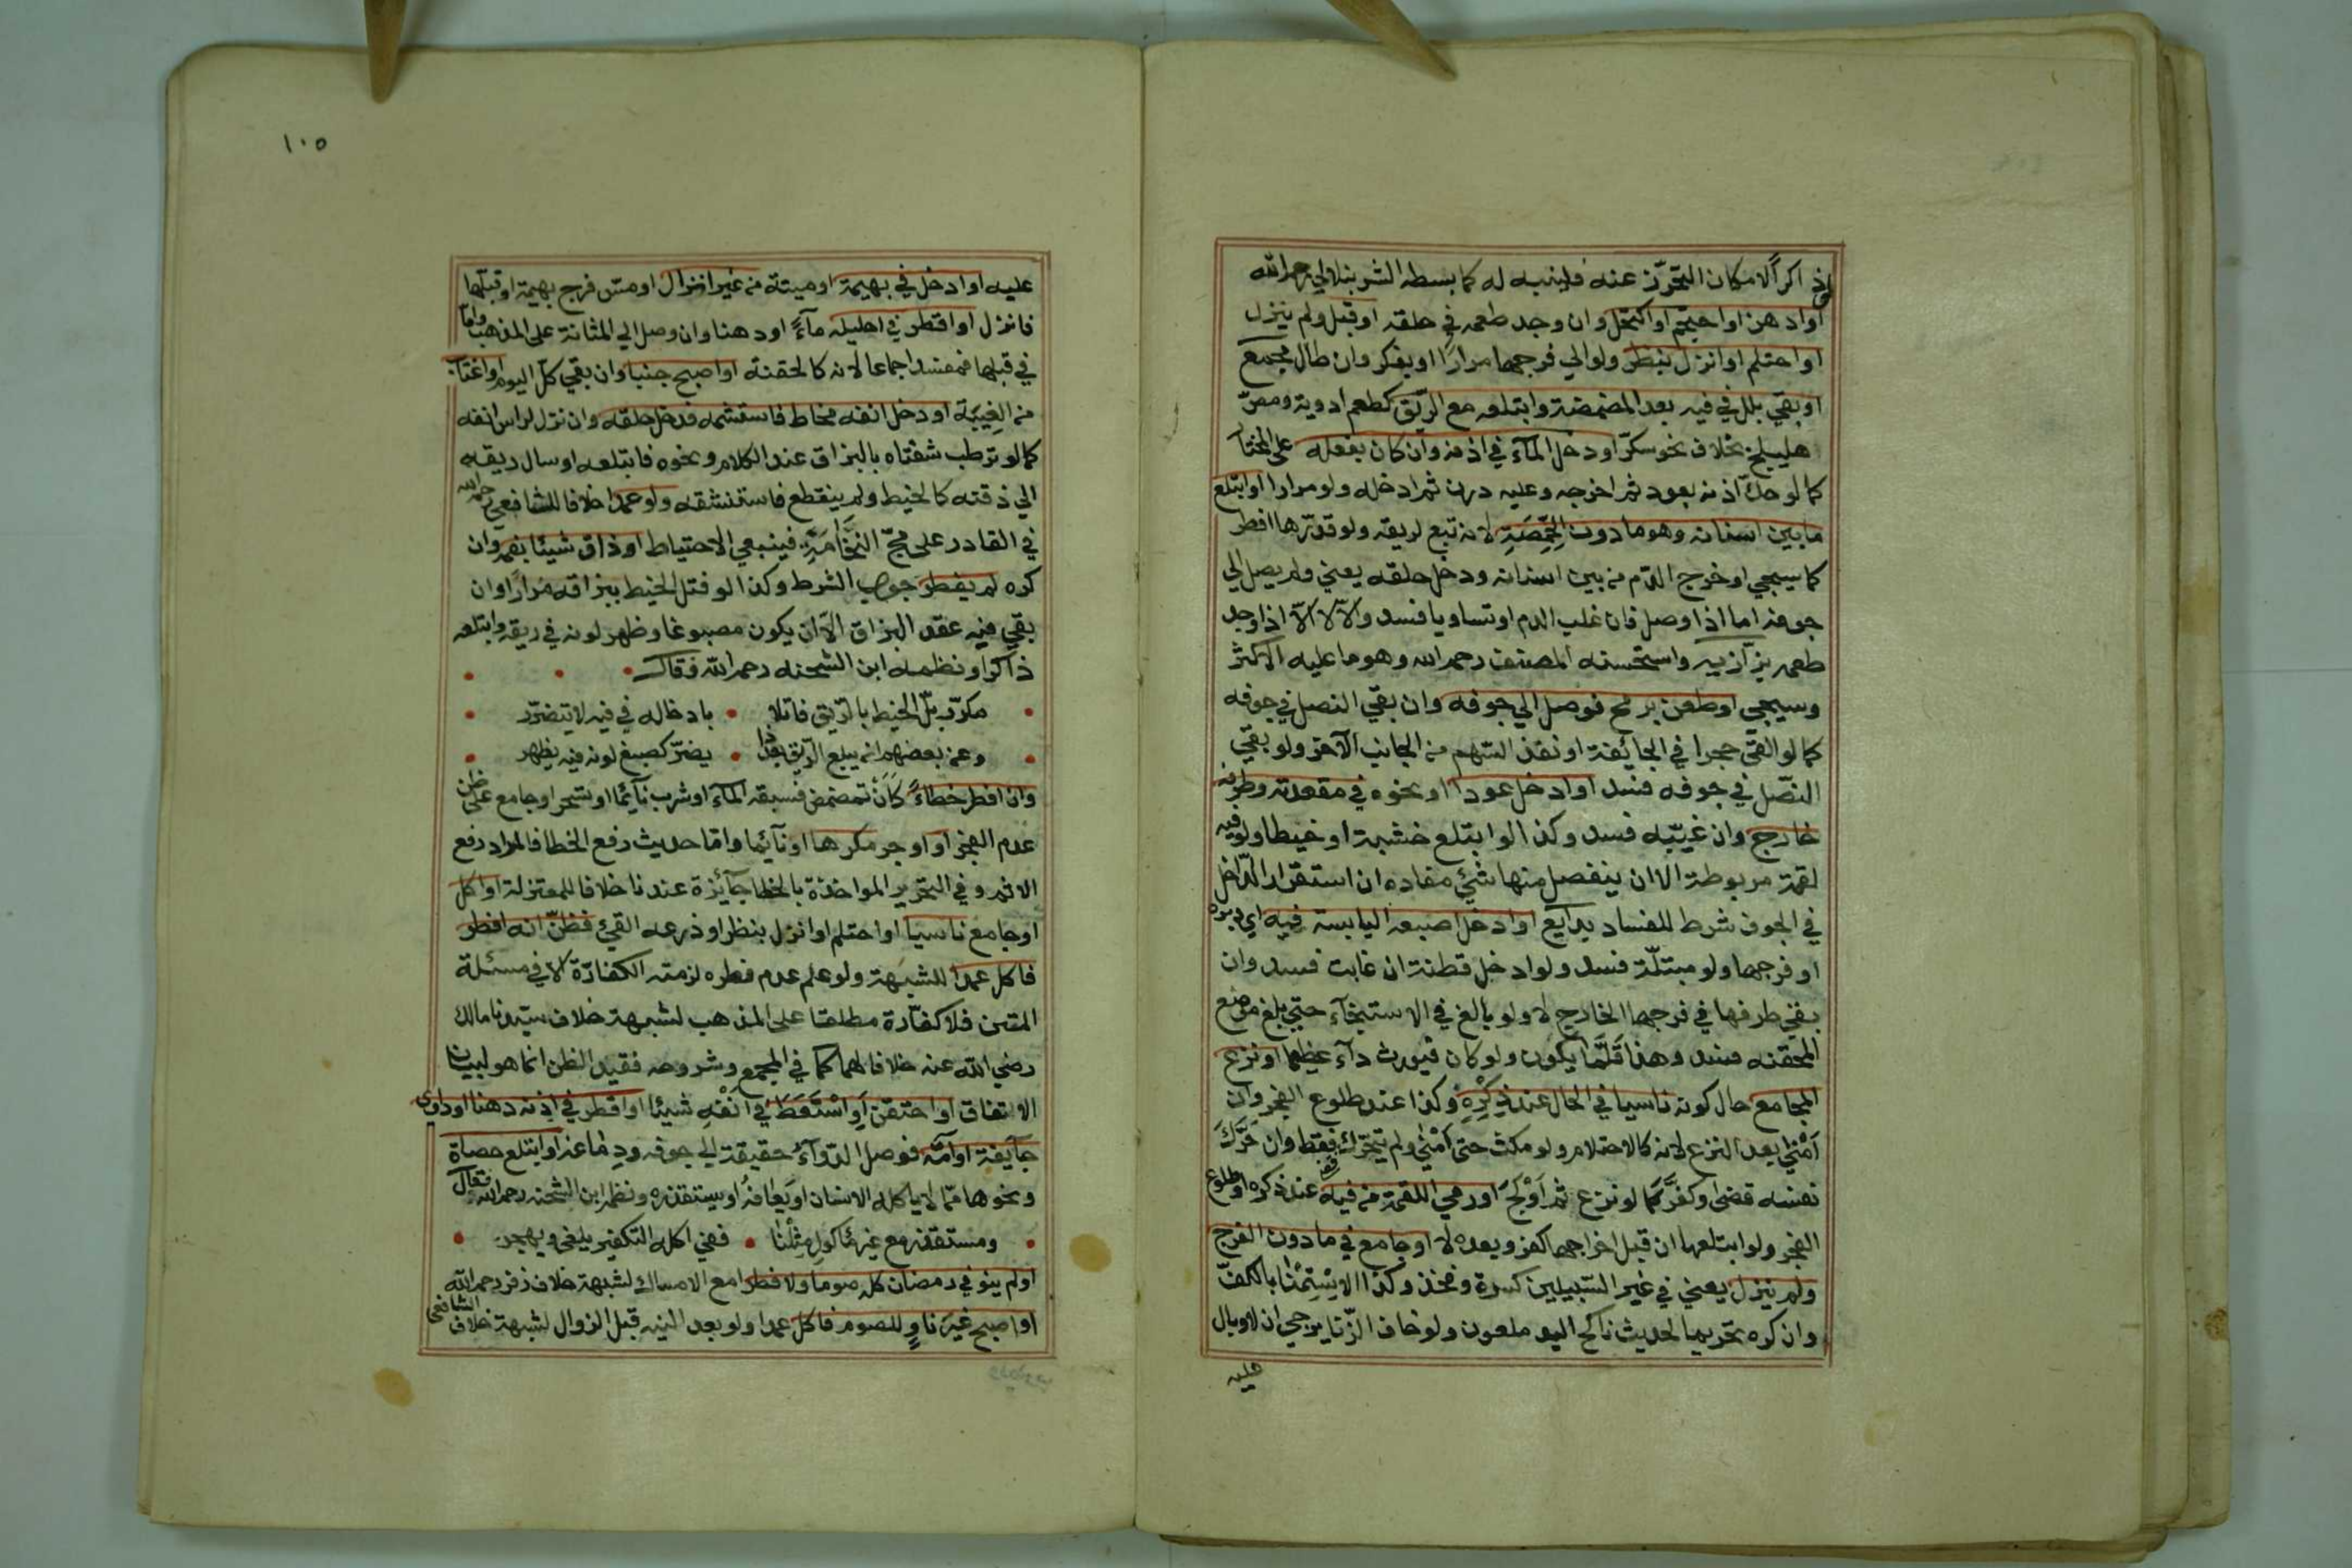 ذاكرا لامكان التحرز عنه فليتنبه له كما بسطه الشرنبلالي رحمه الله
او ادهن او احتجم او اكتحل وان وجد طعمه في حلقه او قبل ولم ينزل
او احتلم او انزل بنظر ولو الي فرجها مرارا او بفكر وان طال مجمع
او بقي بلل في فيه بعد المضمضة وابتلعه مع الريق كطعم ادوية ومص
هليلج بخلاف نحو سكر او دخل الماء في اذنه وان كان بفعله على المختار
كما لو حك اذنه بعود ثم اخرجه وعليه درن ثم ادخله ولو مرارا او ابتلع
ما بين اسنانه وهو ما دون الحمصة لانه تبع لريقه ولو قدرها افطر
كما سيجي او خرج الدم من بين اسنانه ودخل حلقه يعني ولم يصل الي
جوفه اما اذا وصل فان غلب الدم او تساويا فسد والا لا الا اذا وجد
طعمه بزازيه واستحسنه المصنف رحمه الله وهو ما عليه الاكثر
وسيجي او طعن برمح فوصل الي جوفه وان بقي النصل في جوفه
كما لو القي حجرا في الجائفة او نفذ السهم من الجانب الآخر ولو بقي
النصل في جوفه فسد او ادخل عودا او نحوه في مقعدته وطرفه
خارج وان غيبه فسد وكذا لو ابتلع خشبة او خيطا ولو فيه
لقمة مربوطة الا ان ينفصل منها شئ مفاده ان استقرار الداخل
في الجوف شرط للفساد بدايع او ادخل اصبعه اليابسة فيه اي دبره
او فرجها ولو مبتلة فسد ولو ادخل قطنة ان غابت فسد وان
بقي طرفها في فرجها الخارج لا ولو بالغ في الاستنجاء حتي بلغ موضع
المحقنه فسد وهذا قلما يكون ولو كان فيورث داء عظيما او نزع
المجامع حال كونه ناسيا في الحال عند ذكره وكذا عند طلوع الفجر وان
امني بعد النزع لانه كالاحتلام ولو مكث حتى امني ولم يتحرك قضي فقط وان حرك
نفسه قضى وكفر كما لو نزع ثم اولج او رمي اللقمة من فيه عند ذكره او طلوع
الفجر ولو ابتلعها ان قبل اخراجها كفر وبعده لا او جامع في ما دون الفرج
ولم ينزل يعني في غير السبيلين كسرة وفخذ وكذا الاستمنا بالكف
وان كره تحريما لحديث ناكح اليد ملعون ولو خاف الزنا يرجي ان لا وبال
عليه
١٠٥
عليه او ادخل في بهيمة او ميتة من غير انزال او مس فرج بهيمة او قبلها
فانزل او اقطر في احليله ماء او دهنا وان وصل الي المثانة على المذهب واما
في قبلها فمفسد اجماعا لانه كالحقنة او اصبح جنبا وان بقي كل اليوم او اغتاب
من الغيبة او دخل انفه مخاط فاستشمه فدخل حلقه وان نزل لراس انفه
كما لو ترطب شفتاه بالبزاق عند الكلام ونحوه فابتلعه او سال ريقه
الي ذقنه كالخيط ولم ينقطع فاستنشقه ولو عمدا خلافا للشافعي رحمه الله
في القادر على مج النخامة فينبغي الاحتياط او ذاق شيئا بفمه وان
كره لم يفطر جواب الشرط وكذا لو فتل الخيط ببزاقه مرارا وان
بقي فيه عقد البزاق الا ان يكون مصبوغا وظهر لونه في ريقه وابتلعه
ذاكرا ونظمه ابن الشحنه رحمه الله فقال
مكرر بل الخيط بالريق فاتلا بادخاله في فيه لا يتضرر
وعن بعضهم ان يبلع الريق بعد ذا يضر كصبغ لونه فيه يظهر
وان افطر خطاء كان تمضمض فسبقه الماء او شرب نائما او تسحر او جامع على ظن
عدم الفجر او اوجر مكرها او نائما واما حديث رفع الخطا فالمراد رفع
الاثم وفي التحرير المواخذة بالخطا جائزة عندنا خلافا للمعتزلة او اكل
او جامع ناسيا او احتلم او انزل بنظر او ذرعه القئ فظن انه افطر
فاكل عمدا للشبهة ولو علم عدم فطره لزمته الكفارة الا في مسئلة
المتن فلا كفارة مطلقا على المذهب لشبهة خلاف سيدنا مالك
رضي الله عنه خلافا لهما كما في المجمع وشروحه فقيد الظن انما هو لبيان
الاتفاق او احتقن او استعط في انفه شيئا او اقطر في اذنه دهنا او داوى
جايفة او آمة فوصل الدواء حقيقة الي جوفه ودماغه او ابتلع حصاة
ونحوها مما لا ياكله الانسان او يعافه او يستقذره ونظم ابن الشحنه رحمه الله فقال
ومستقذر مع غير مأكول مثلنا ففي اكله التكفير يلغي ويهجر
او لم ينو في رمضان كله صوما ولا فطرا مع الامساك لشبهة خلاف زفر رحمه الله
او اصبح غير ناو للصوم فاكل عمدا ولو بعد النيه قبل الزوال لشبهة خلاف الشافعي